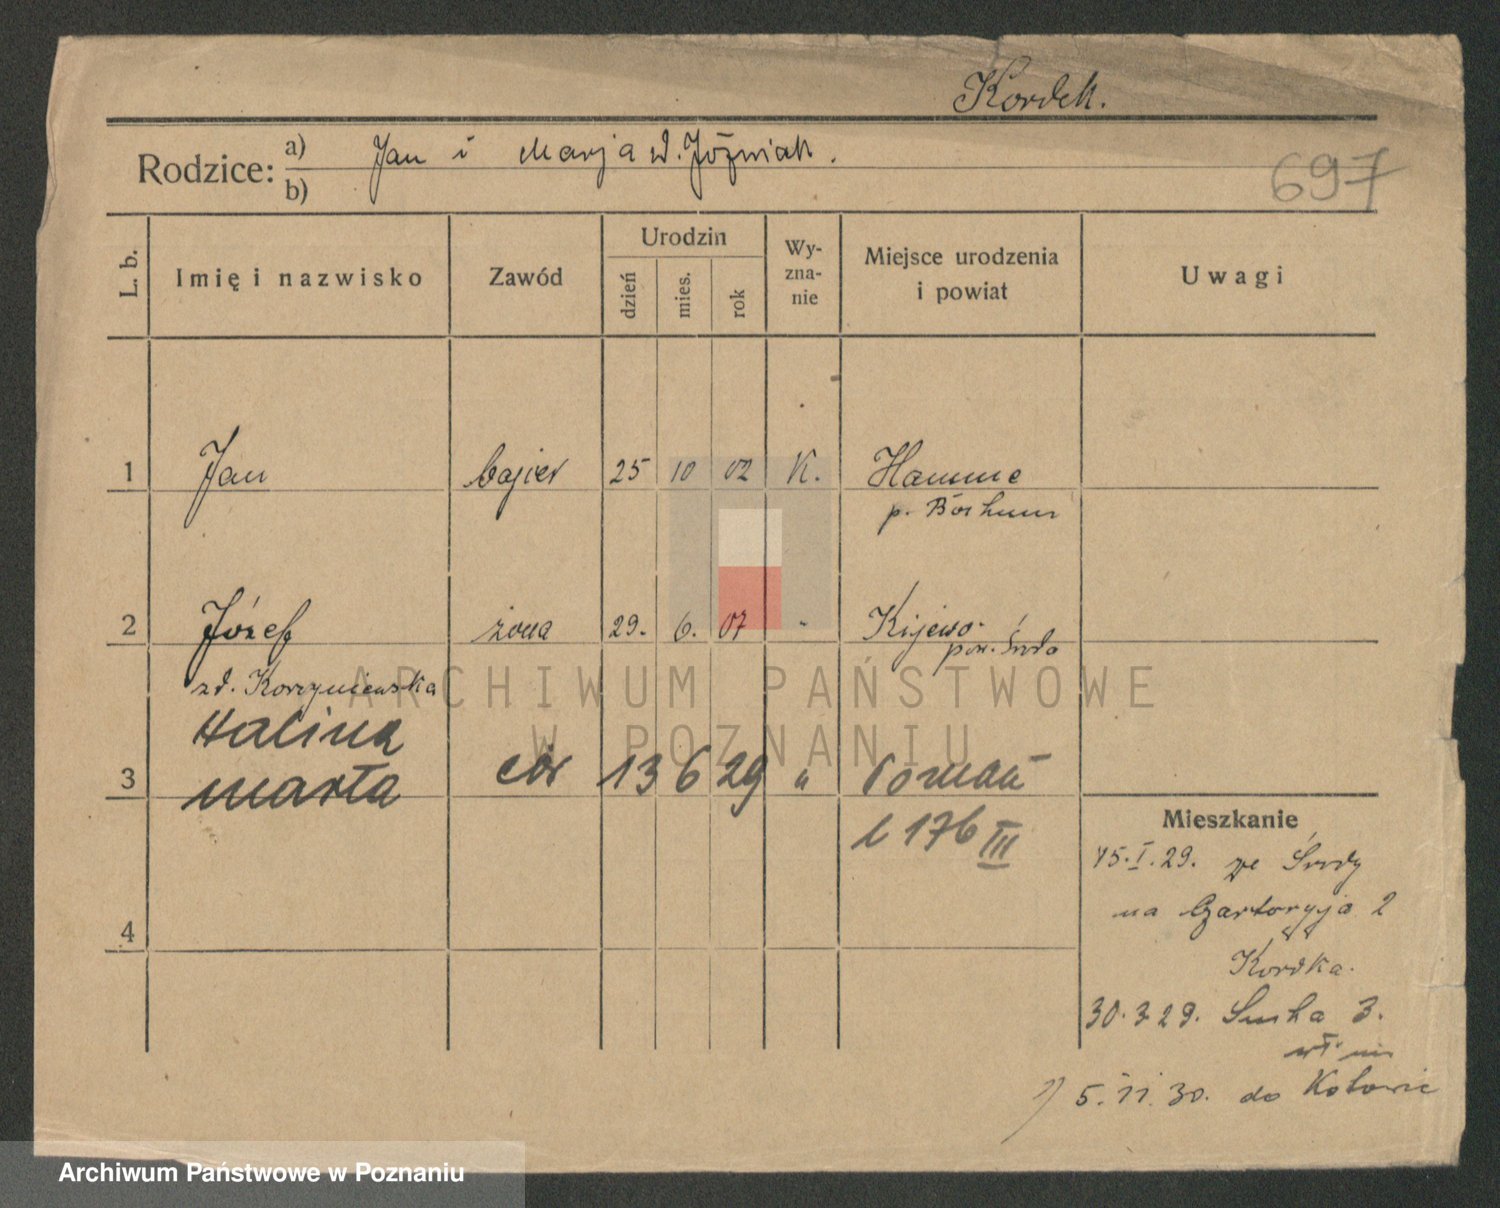 Kordek.
Rodzice: a) Jan i Marja zd. Jóźwiak.
b)
697
L. b.
Imię i nazwisko
Zawód
Urodzin
dzień
mies.
rok
Wy-
zna-
nie
Miejsce urodzenia
i powiat
Uwagi
1 Jan bajer 25 10 02 K. Hamme
p. Bochum
2 Józef żona 29. 6. 07 " Kijewo
pow. Środa
zd. Korzyniewska
Halina
3 Marta cór 13 6 29 " Poznań
l 176 III
Mieszkanie
15.I.29. ze Środy
na Czartoryja 2
Kordka.
4
30.3.29. Sucha 3.
5.11.30. do
ARCHIWUM PAŃSTWOWE
W POZNANIU
Archiwum Państwowe w Poznaniu